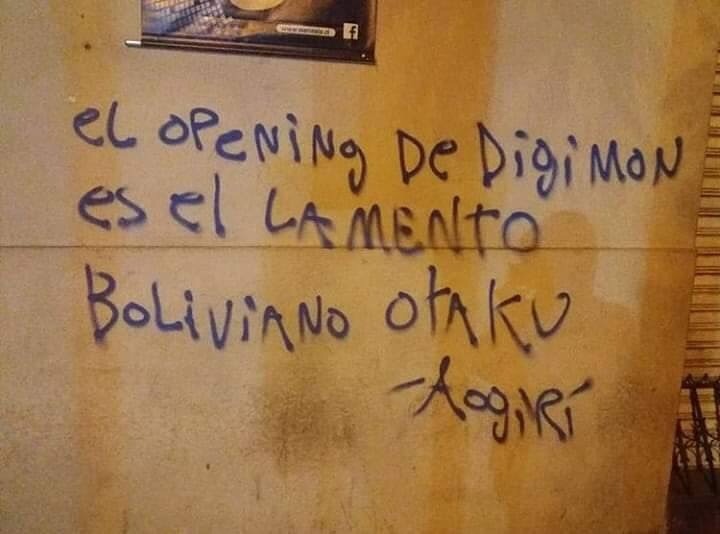 el opening de Digimon
es el LAMENTO
Boliviano otaku
-Aogiri